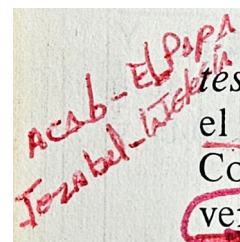 Acab-El Papa
Jezabel-La Iglesia
tes
el
Co
ve